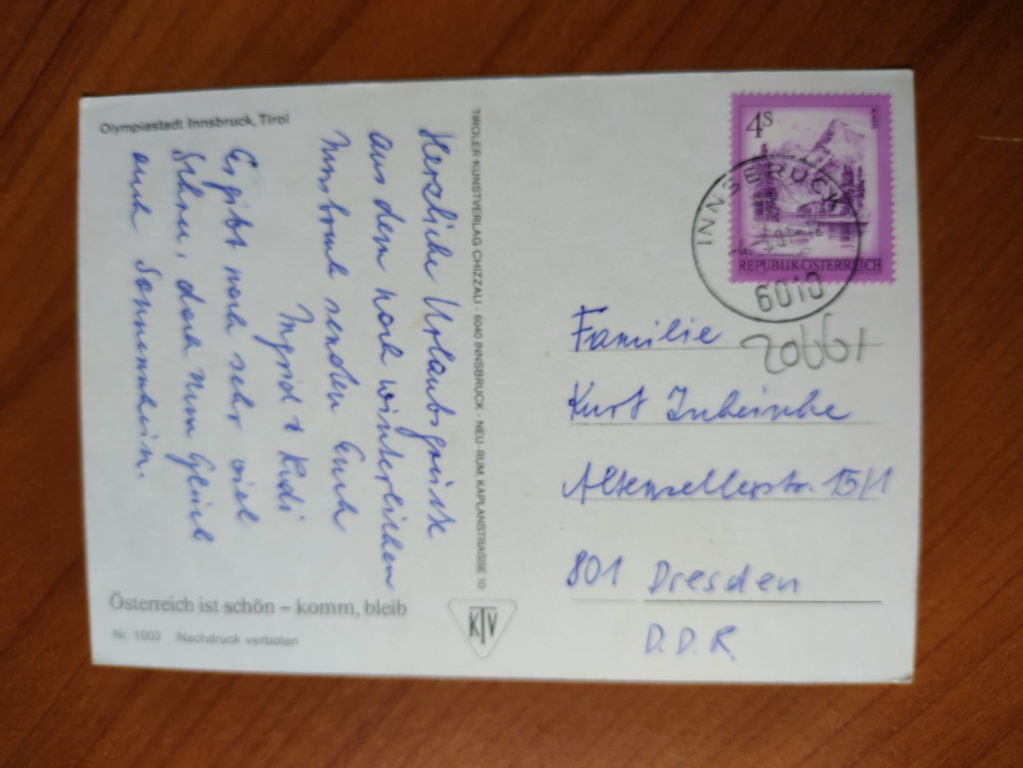 Olympiastadt Innsbruck, Tirol
Herzliche Urlaubsgrüße
aus dem noch winterlichen
Innsbruck senden Euch
Ingrid & Rudi
Es gibt noch sehr viel
Schnee, doch zum Glück
auch Sonnenschein.
Österreich ist schön – komm, bleib
Nr. 1003 Nachdruck verboten
TIROLER KUNSTVERLAG CHIZZALI · 6040 INNSBRUCK - NEU-RUM, KAPLANSTRASSE 10
KTV
4S
REPUBLIK ÖSTERREICH
INNSBRUCK
6010
20661
Familie
Kurt
Altenzellerstr. 15/1
801 Dresden
D.D.R.